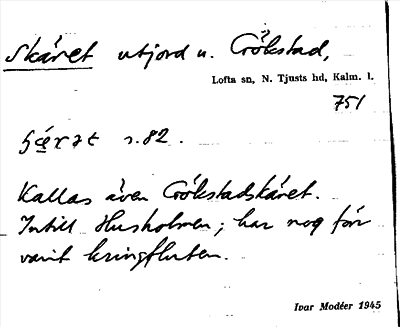 Skäret utjord u. Gökstad,
Lofta sn, N. Tjusts hd, Kalm. l.
751
s. 82.
Kallas även Gökstadskäret.
Intill Husholmen; har nog förr
varit kringfluten.
Ivar Modéer 1945